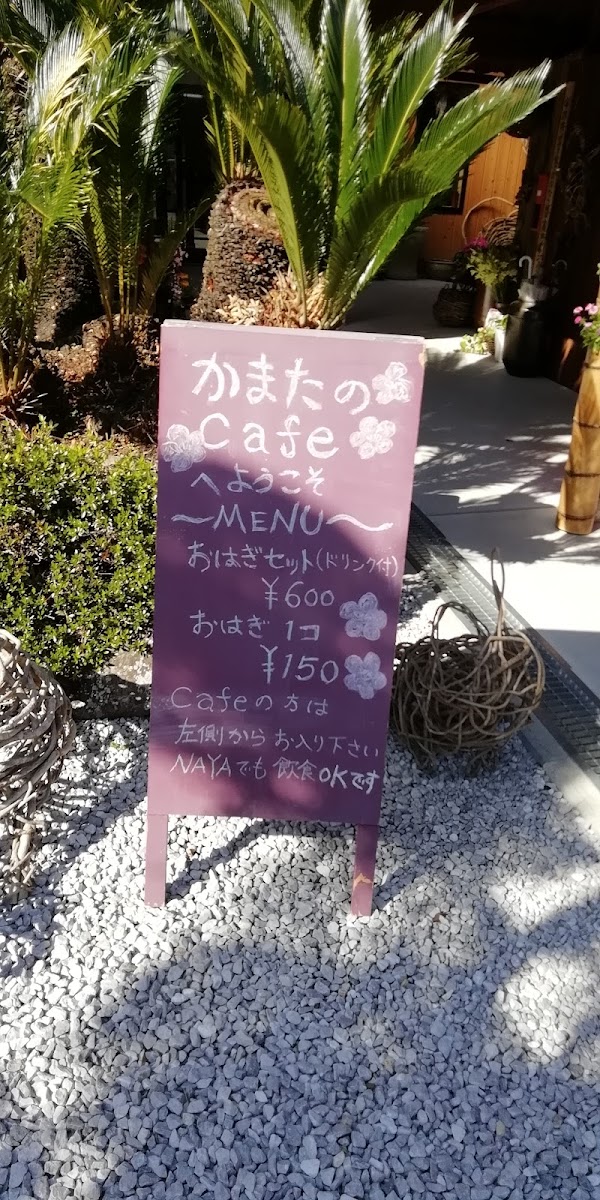 かまたの
Cafe
へようこそ
～MENU～
おはぎセット(ドリンク付)
¥600
おはぎ 1コ
¥150
Cafeの方は
左側からお入り下さい
NAYAでも飲食OKです